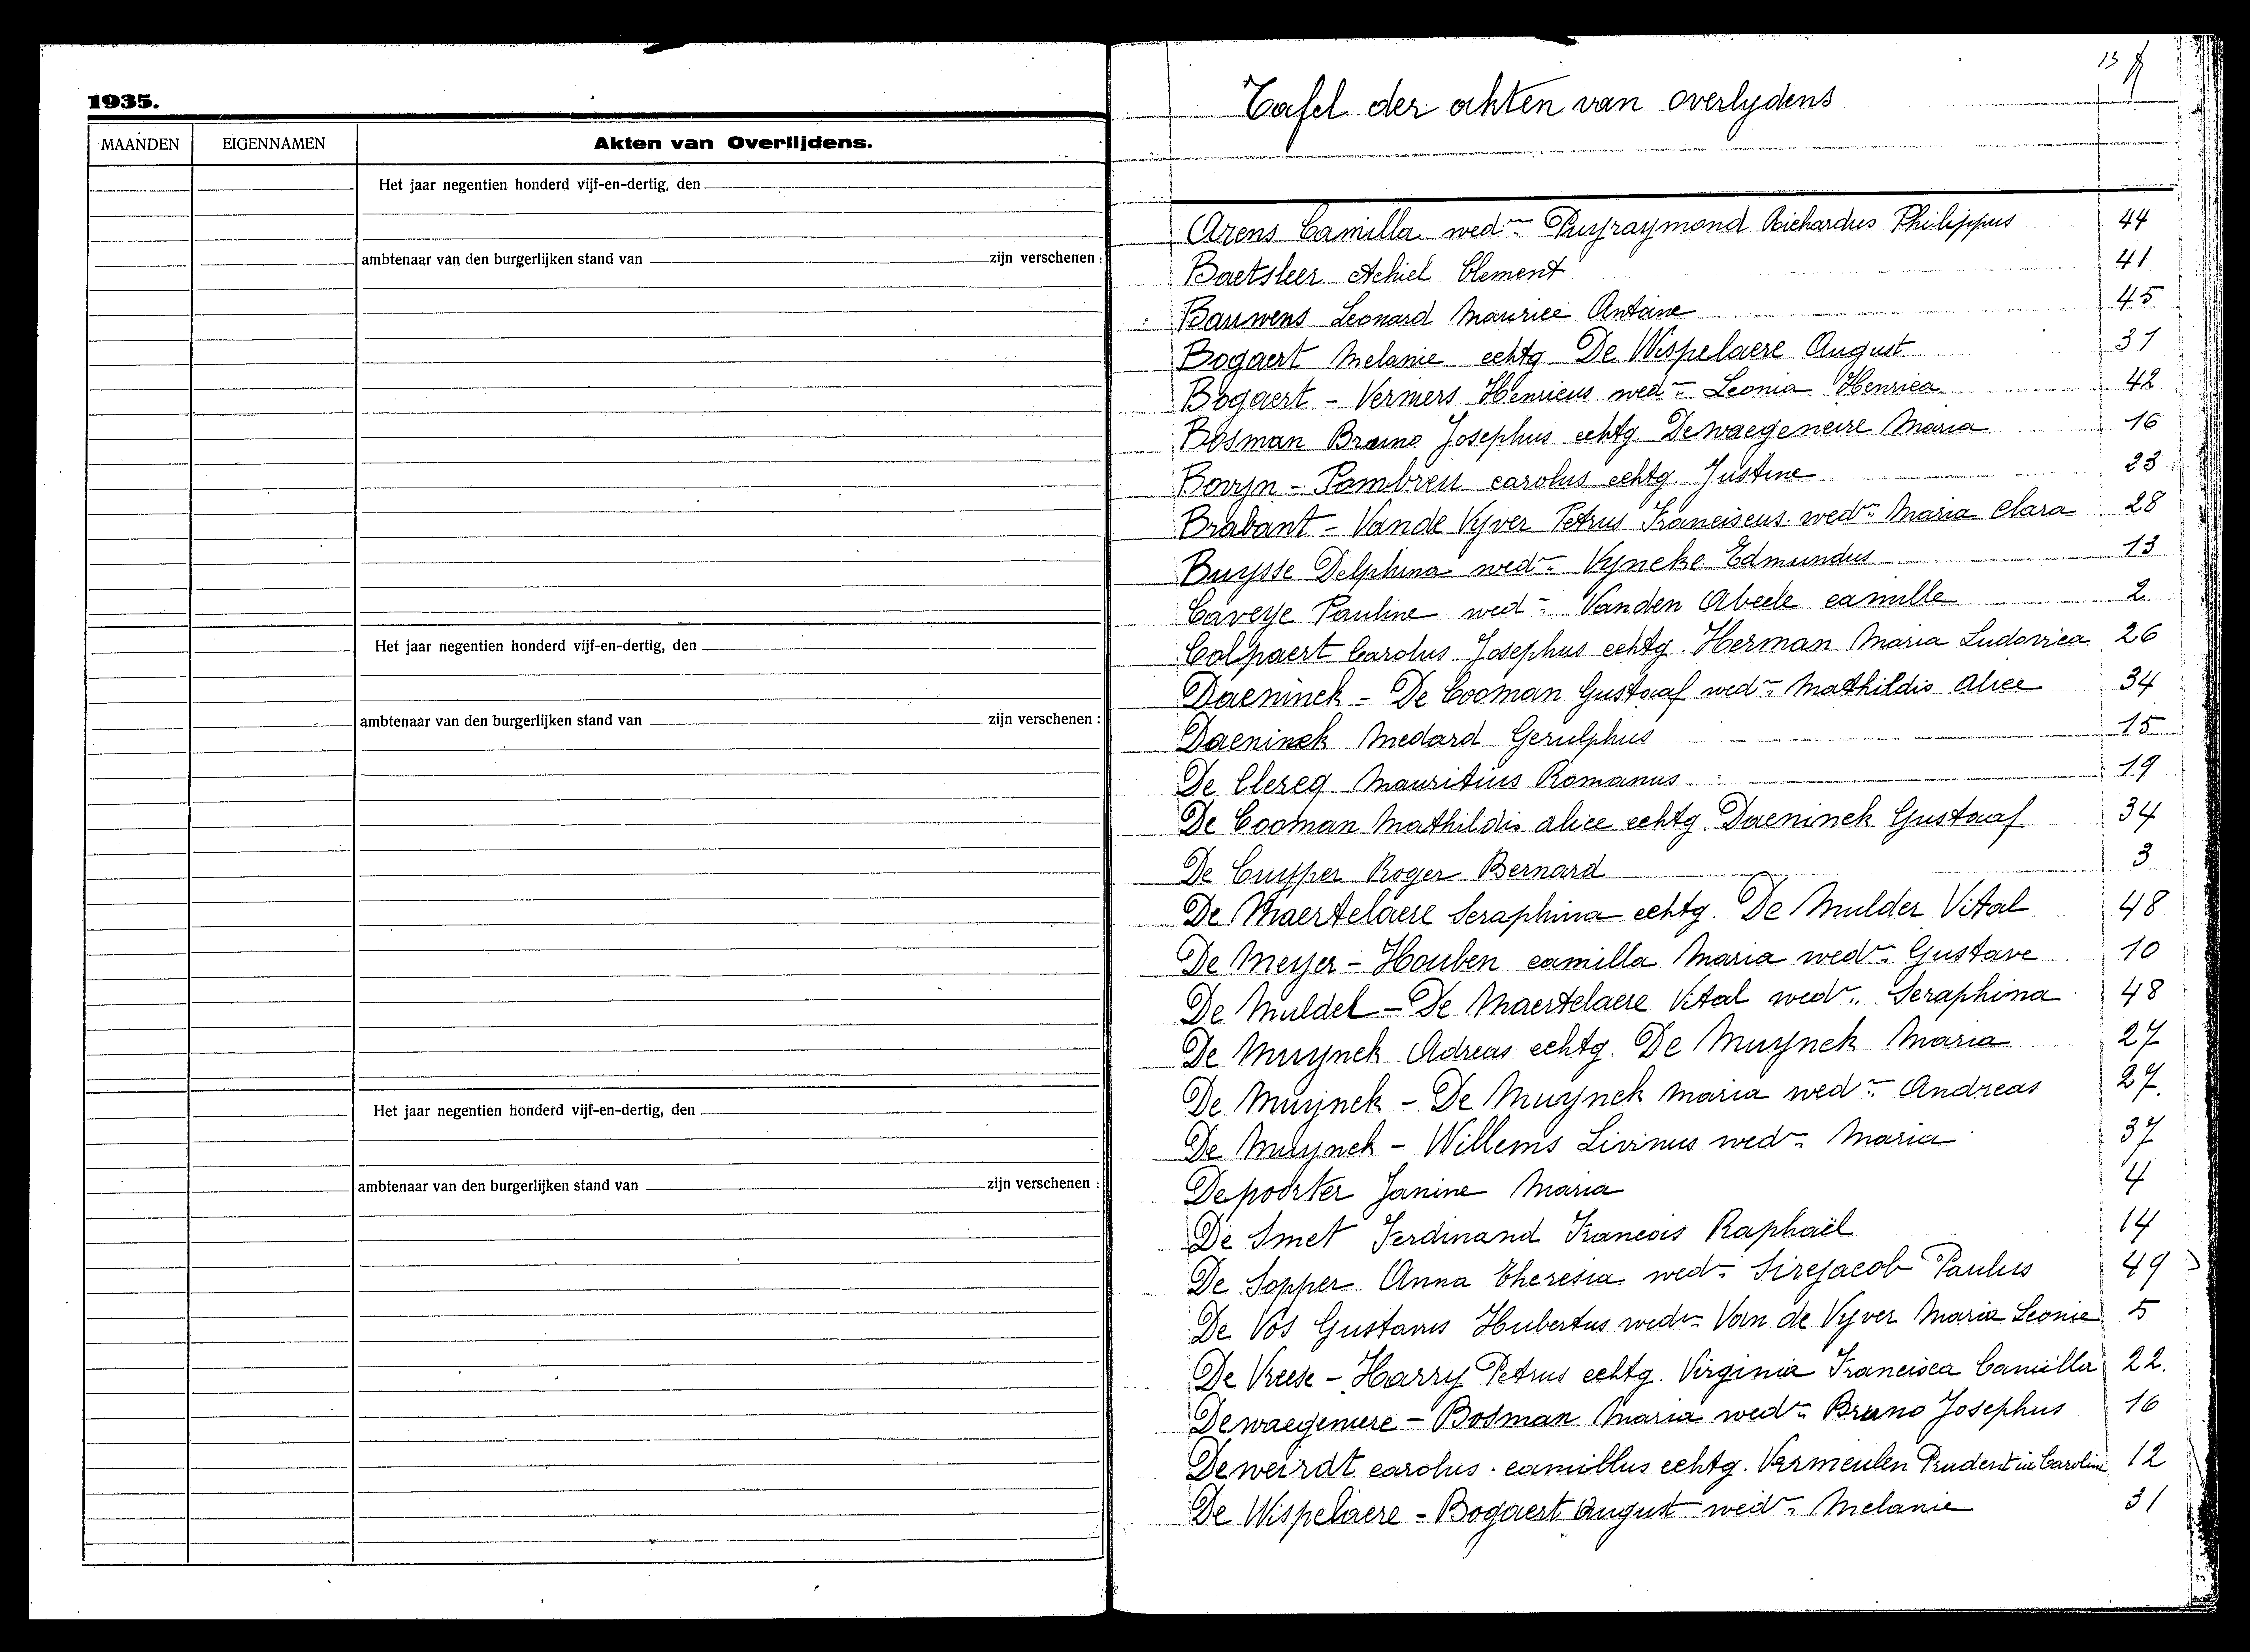 1935.
MAANDEN EIGENNAMEN Akten van Overlijdens.
Het jaar negentien honderd vijf-en-dertig, den
ambtenaar van den burgerlijken stand van zijn verschenen :
Het jaar negentien honderd vijf-en-dertig, den
ambtenaar van den burgerlijken stand van zijn verschenen :
Het jaar negentien honderd vijf-en-dertig, den
ambtenaar van den burgerlijken stand van zijn verschenen :
13
Tafel der akten van overlydens
Arens Camilla wedr Richardus Philippus 44
Baetsleer Achiel Clement 41
Bauwens Leonard Maurice Antoine 45
Bogaert Melanie echtg De Wispelaere August 31
Bogaert - Vermers Henricus wedr Leonia Henrica 42
Bosman Bruno Josephus echtg. Dewaegeneire Maria 16
Bovyn - Pambreu carolus echtg. Justine 23
Brabant - Vande Vyver Petrus Franciscus wedr Maria Clara 28
Buysse Delphina wedr Vyncke Edmundus 13
Caveye Pauline wedr Vanden Abeele camille 2
Colpaert Carolus Josephus echtg. Herman Maria Ludovica 26
Daeninck - De Cooman Gustaaf wedr Mathildis Alice 34
Daeninck Medard Gerulphus 15
De Clercq Mauritius Romanus 19
De Cooman Mathildis alice echtg. Daeninck Gustaaf 34
De Cuyper Roger Bernard 3
De Maertelaere Seraphina echtg. De Mulder Vital 48
De Meyer - Houben camilla Maria wedr Gustave 10
De Muldel - De Maertelaere Vital wedr Seraphina 48
De Muynck Adreas echtg. De Muynck Maria 27
De Muynck - De Muynck Maria wedr Andreas 27.
De Muynck - Willems Livinus wedr Maria 37
Depoorter Janine Maria 4
De Smet Ferdinand Francois Raphaël 14
De Sopper Anna Theresia wedr Sirejacob Paulus 49
De Vos Gustavus Hubertus wedr Van de Vyver Maria Leonie 5
De Vreese - Harry Petrus echtg. Virginia Francisca Camilla 22.
Dewaegenere - Bosman Maria wedr Bruno Josephus 16
Deweirdt carolus camillus echtg. Vermeulen Prudentia Carolin 12
De Wispelaere - Bogaert August wedr Melanie 31